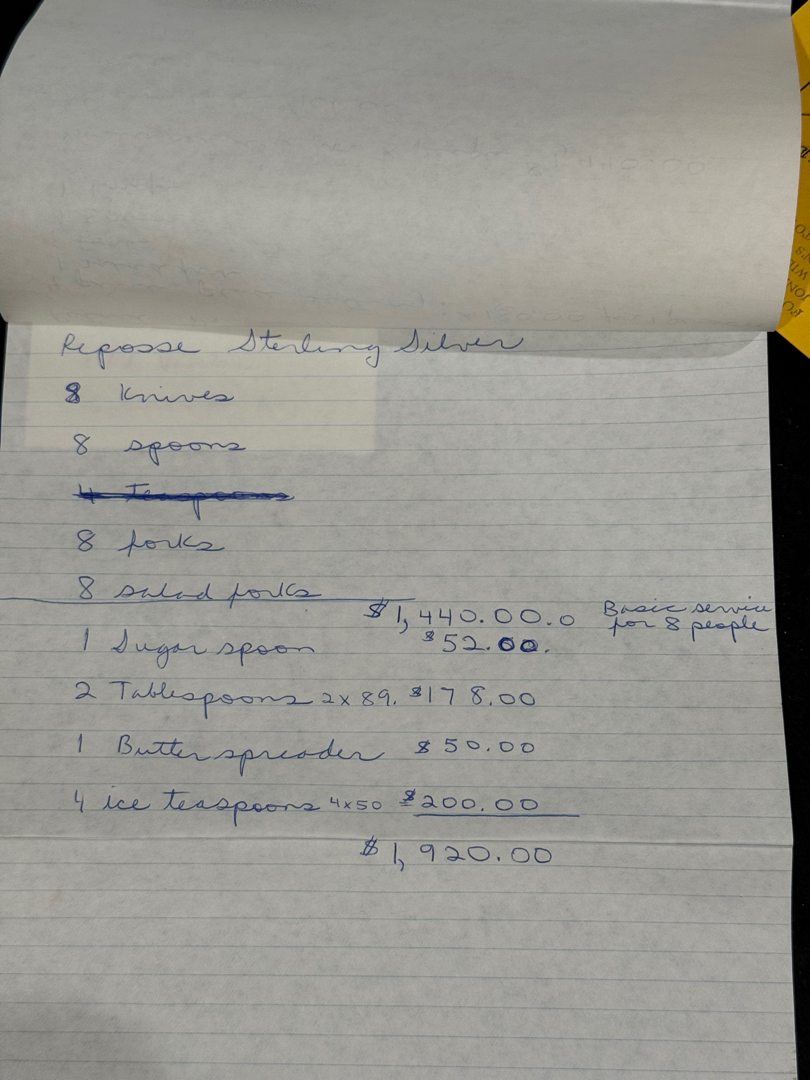 Reposse Sterling Silver
8 Knives
8 spoons
4 Teaspoons
8 forks
8 salad forks
$1,440.00.0 Basic service for 8 people
1 Sugar spoon $52.00.
2 Tablespoons 2x89. $178.00
1 Butter spreader $50.00
4 ice teaspoons 4x50 $200.00
$1,920.00